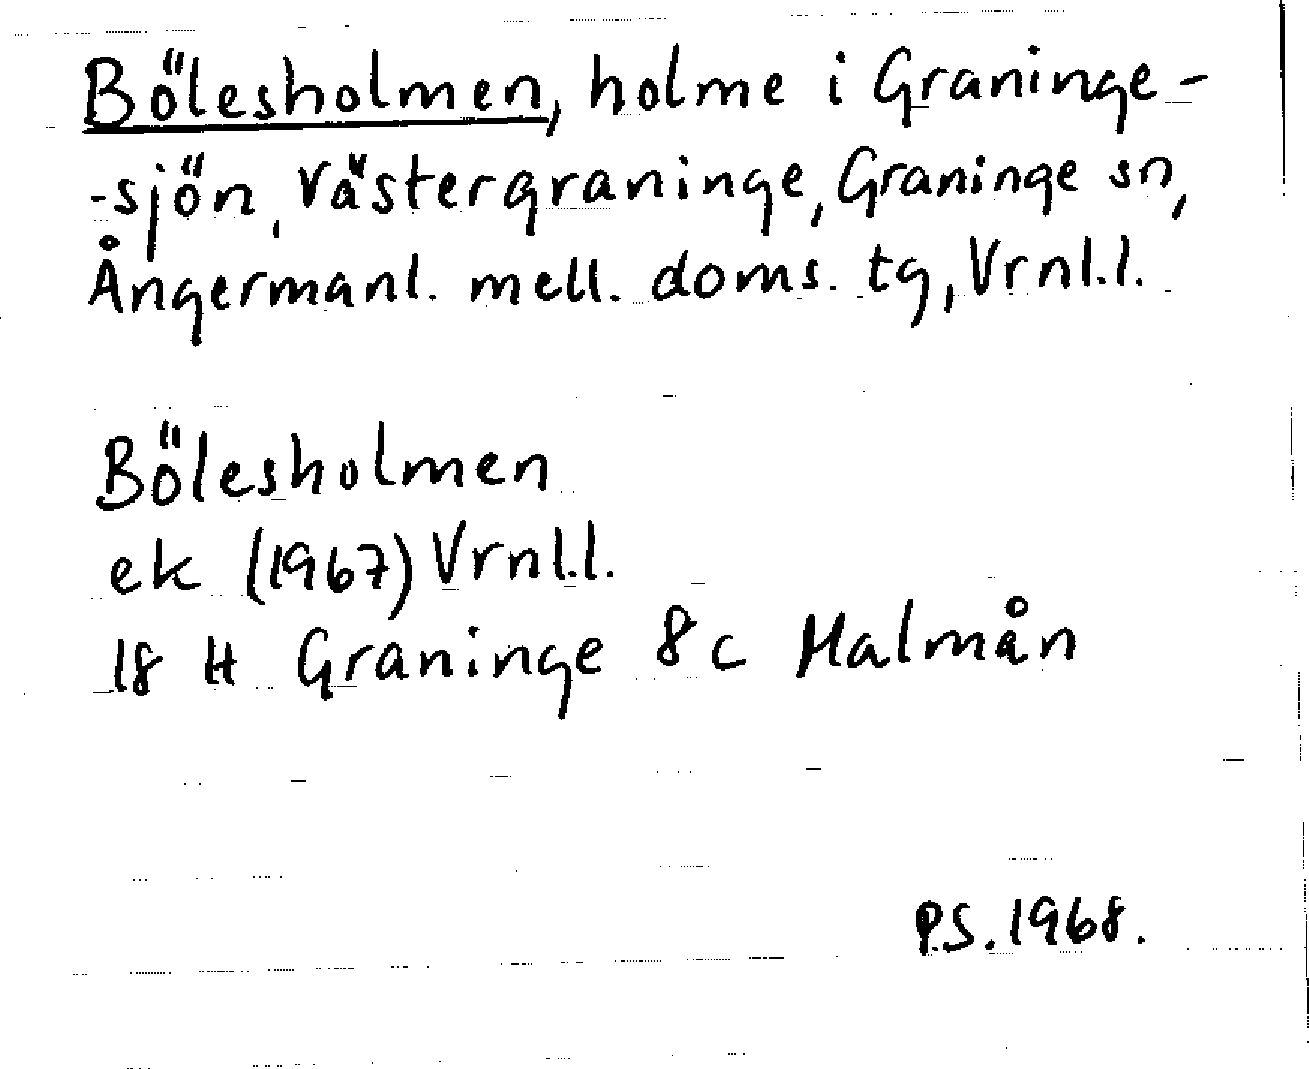 Bölesholmen, holme i Graninge-
-sjön, Västergraninge, Graninge sn,
Ångermanl. mell. doms. tg, Vrnl.l.
Bölesholmen
ek (1967) Vrnl.l.
18 H Graninge 8c Malmån
P.S. 1968.